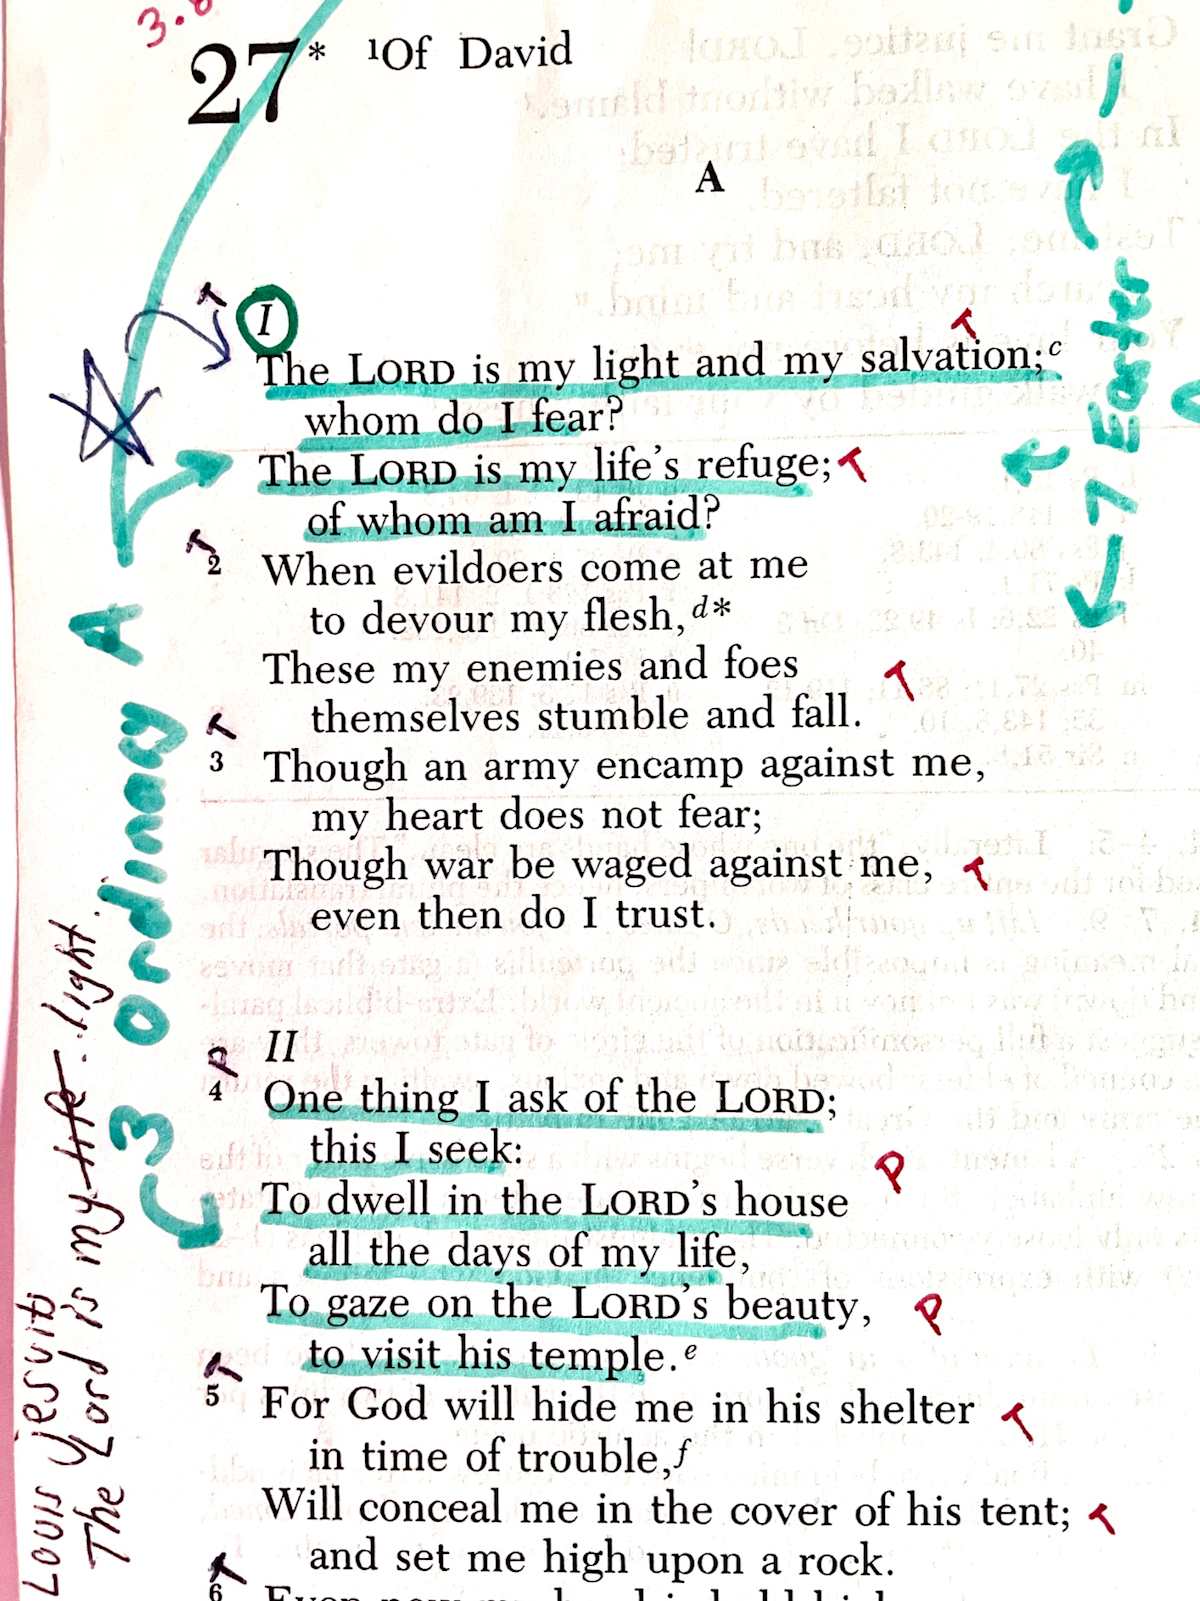 27* ¹Of David
A
I
The LORD is my light and my salvation;ᶜ
whom do I fear?
The LORD is my life's refuge;
of whom am I afraid?
2 When evildoers come at me
to devour my flesh,ᵈ*
These my enemies and foes
themselves stumble and fall.
3 Though an army encamp against me,
my heart does not fear;
Though war be waged against me,
even then do I trust.
II
4 One thing I ask of the LORD;
this I seek:
To dwell in the LORD'S house
all the days of my life,
To gaze on the LORD'S beauty,
to visit his temple.ᵉ
5 For God will hide me in his shelter
in time of trouble,ᶠ
Will conceal me in the cover of his tent;
and set me high upon a rock.
6
T
T
T
T
T
T
T
P
P
P
T
T
T
T
3 Ordinary A
7 Easter
Louis Jesuit
The Lord is my life light.